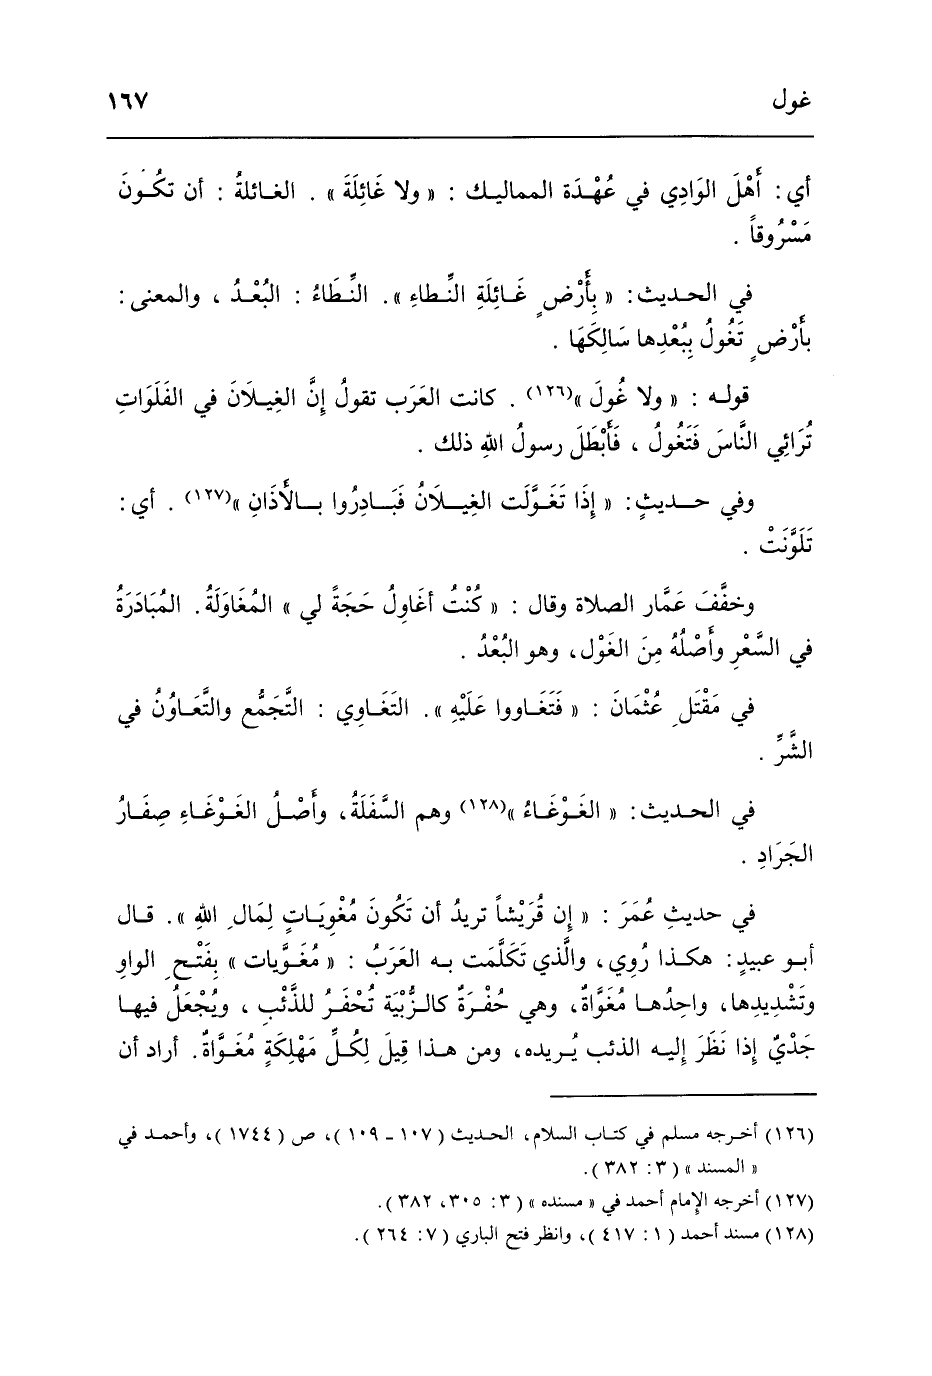 غول ١٦٧
أي: أَهْلَ الوَادِي في عُهْدَة المماليك : « ولا غَائِلَةَ » . الغائلةُ : أن تكُونَ
مَسْرُوقاً .
في الحديث: « بِأَرْضٍ غَائِلَةِ النِّطاءِ ». النِّطَاءُ : البُعْدُ ، والمعنى :
بأَرْضٍ تَغُولُ بِبُعْدِها سَالِكَهَا .
قوله : « ولا غُولَ »(١٢٦) . كانت العَرَب تقولُ إنَّ الغِيلَانَ في الفَلَوَاتِ
تُرَائِي النَّاسَ فَتَغُولُ ، فَأَبْطَلَ رسولُ اللهِ ذلك .
وفي حديثٍ: « إِذَا تَغَوَّلَت الغِيلَانُ فَبَادِرُوا بالأَذَانِ »(١٢٧) . أي :
تَلَوَّنَتْ .
وخفَّفَ عَمَّار الصلاة وقال : « كُنْتُ أغَاوِلُ حَجَةً لي » المُغَاوَلَةُ. المُبَادَرَةُ
في السَّعْرِ وأَصْلُهُ مِنَ الغَوْل، وهو البُعْدُ .
في مَقْتَلِ عُثْمَانَ : « فَتَغَاووا عَلَيْهِ ». التَغَاوِي : التَّجَمُّع والتَّعَاوُنُ في
الشَّرِّ .
في الحديث: « الغَوْغَاءُ »(١٢٨) وهم السَّفَلَةُ، وأَصْلُ الغَوْغَاءِ صِفَارُ
الجَرَادِ .
في حديثِ عُمَرَ : « إن قُرَيْشاً تريدُ أن تَكُونَ مُغْوِيَاتٍ لِمَالِ اللهِ ». قال
أبو عبيدٍ: هكذا رُوِي، والَّذي تَكَلَّمَت به العَرَبُ : « مُغَوَّيات » بِفَتْحِ الواوِ
وتَشْدِيدِها، واحِدُها مُغَوَّاةٌ، وهي حُفْرَةٌ كالزُّبْيَة تُحْفَرُ للذَّئْبِ ، ويُجْعَلُ فيها
جَدْيٌ إذا نَظَرَ إليه الذئب يُريده، ومن هذا قِيلَ لِكُلِّ مَهْلِكَةٍ مُغَوَّاةٌ. أراد أن
(١٢٦) أخرجه مسلم في كتاب السلام، الحديث ( ١٠٧ - ١٠٩ )، ص ( ١٧٤٤ )، وأحمد في
« المسند » ( ٣: ٣٨٢ ).
(١٢٧) أخرجه الإمام أحمد في « مسنده » ( ٣: ٣٠٥، ٣٨٢ ).
(١٢٨) مسند أحمد ( ١ : ٤١٧ )، وانظر فتح الباري ( ٧: ٢٦٤ ).